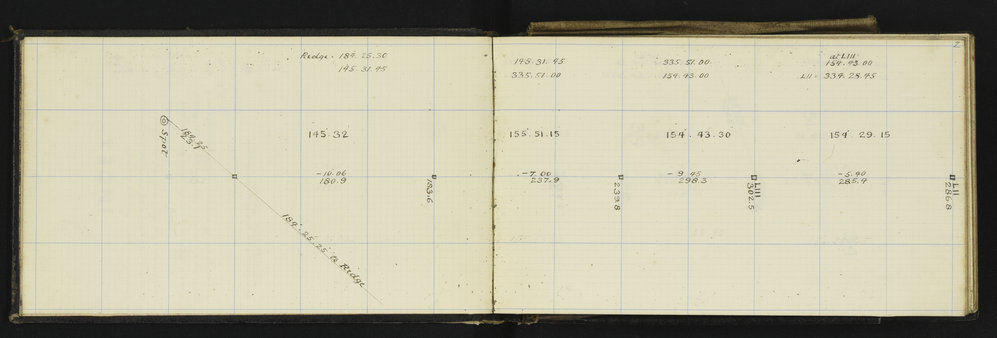 Redge. 189. 25. 30
145. 31. 45
145. 32
Spot
189. 25
23.7
-10.06
180.9
183.6
189°. 25. 25 to Redge
2
145. 31. 45
335. 51. 00
155. 51. 15
-7.00
237.9
239.8
335. 51. 00
154. 43. 00
154. 43. 30
-9.45
298.3
LIII
302.5
at LIII
154. 43. 00
LII = 334. 28. 45
154° 29. 15
-5.40
285.4
LII
286.8